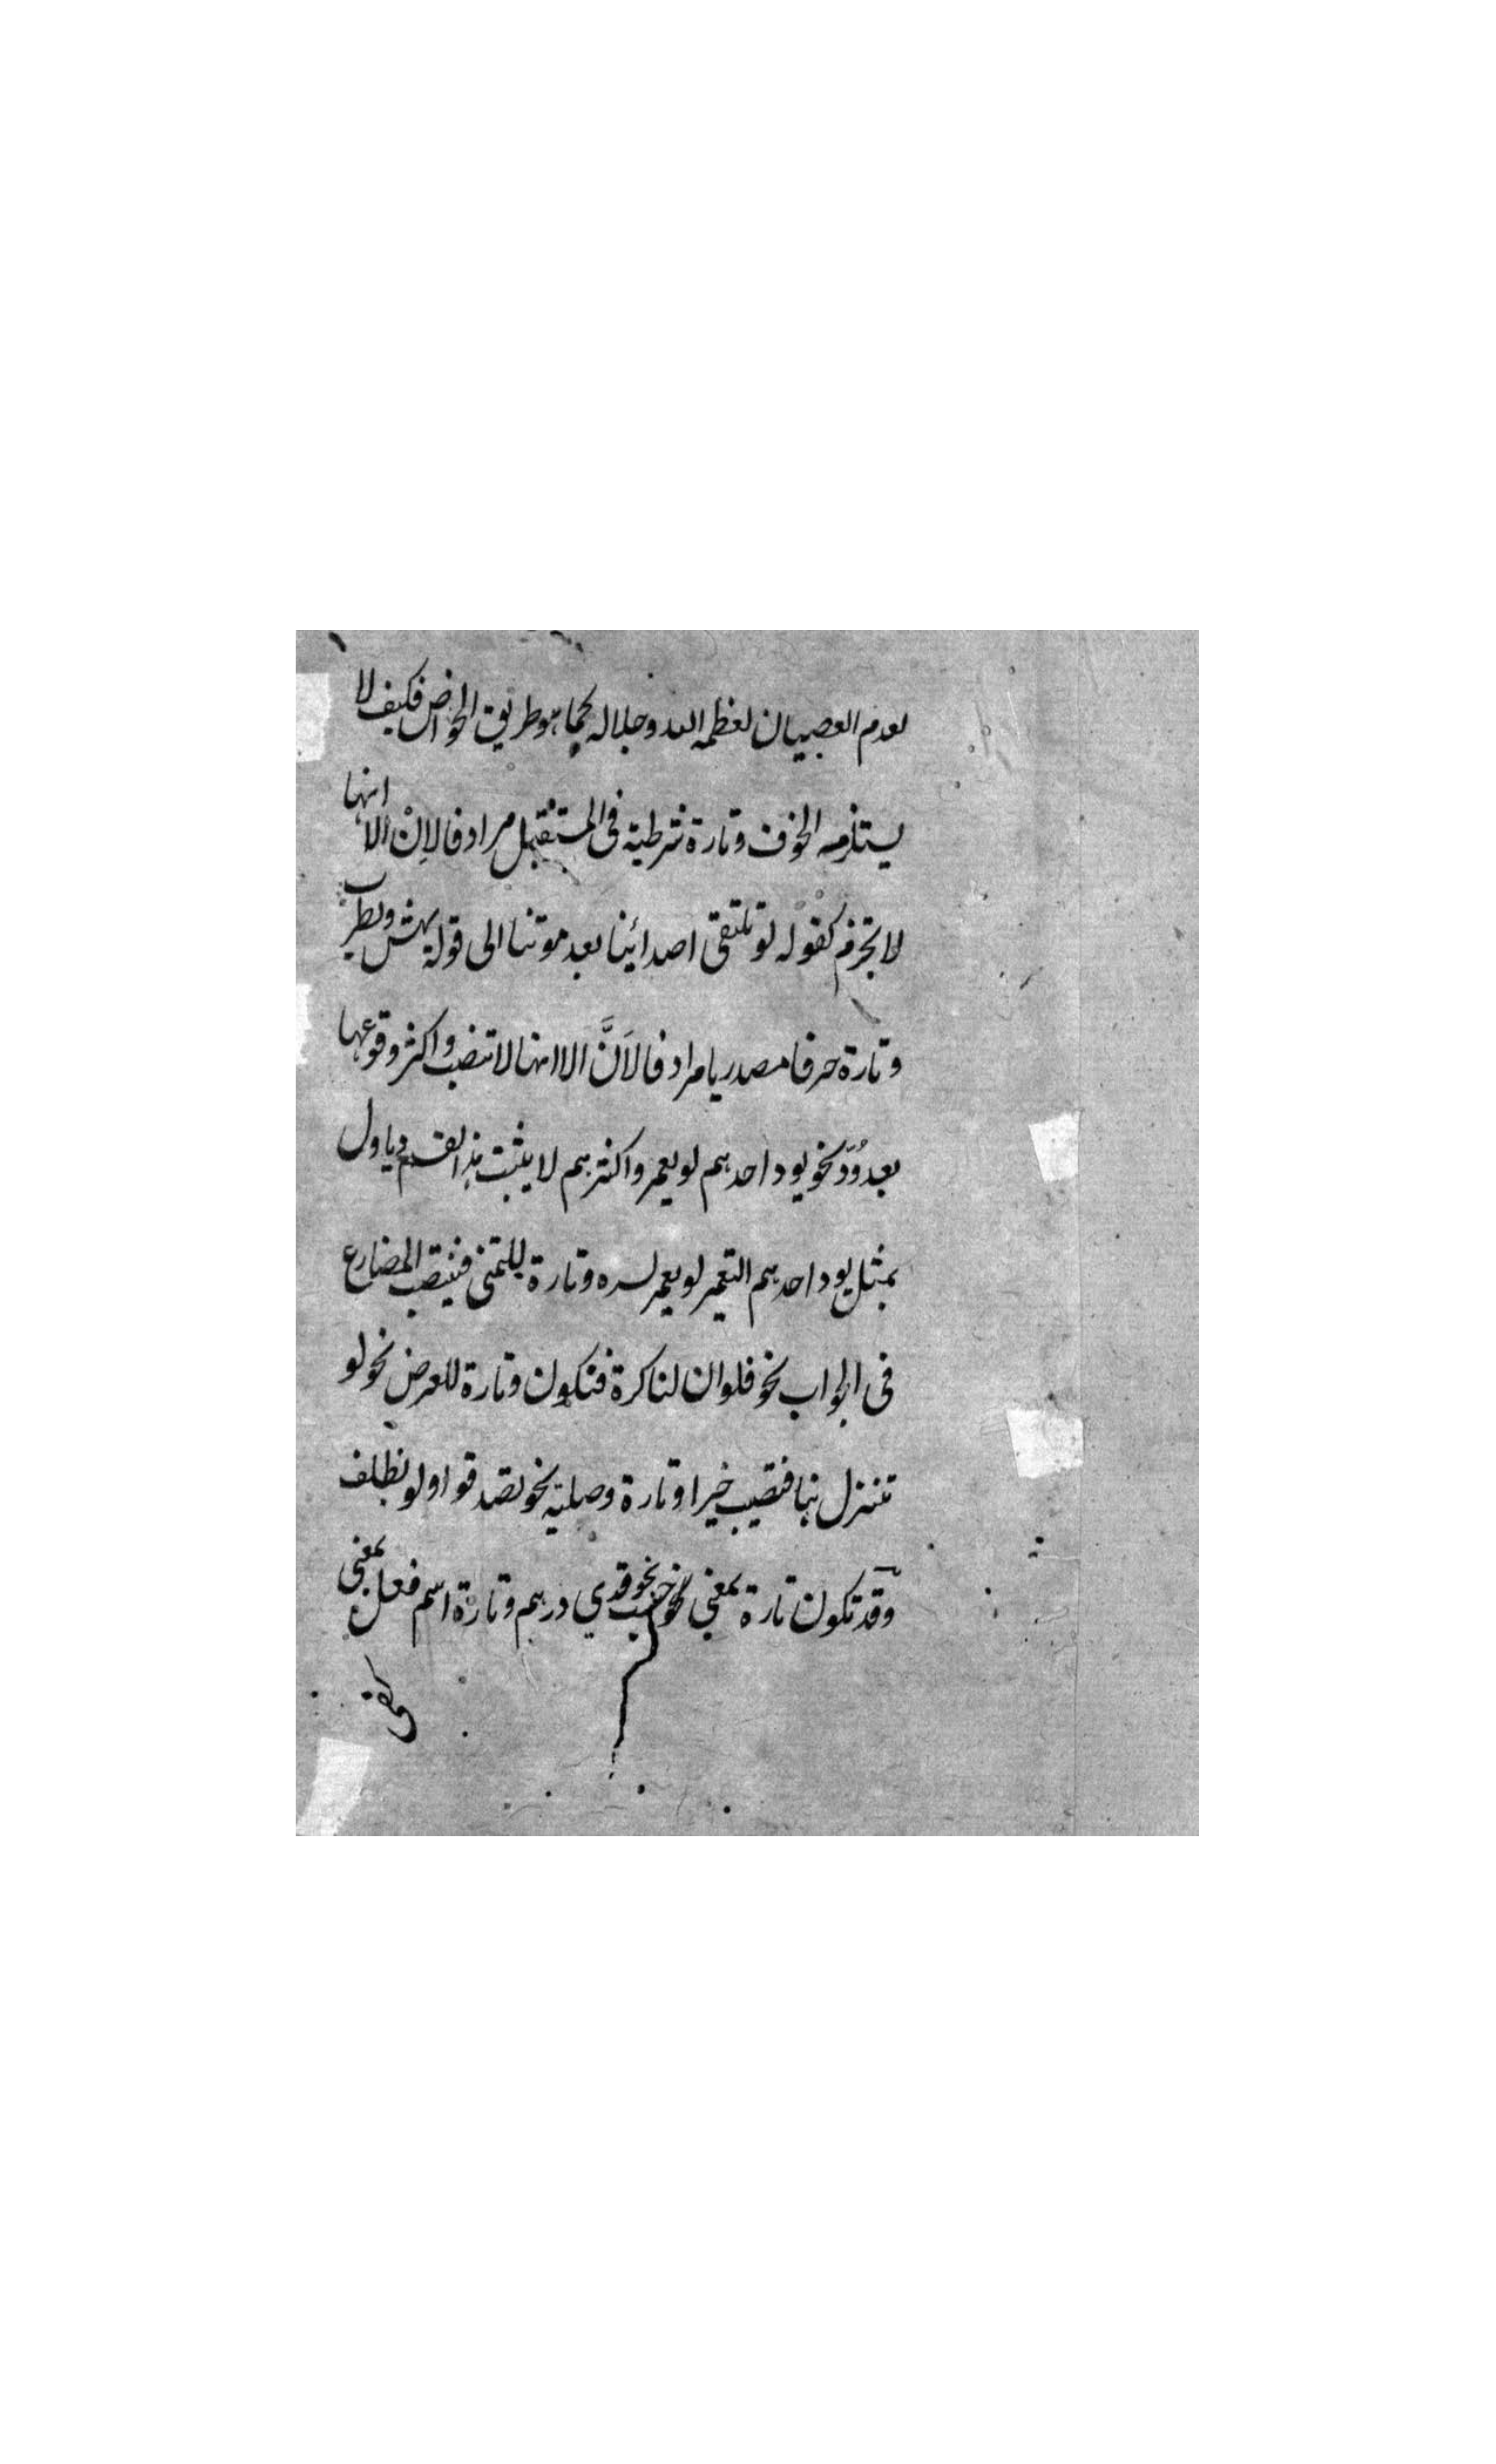 لعدم العصيان لعظمة الله وجلاله كما هو طريق الخواص فكيف لا
يستلزمه الخوف وتارة شرطية فى المستقبل مرادفا لاِنْ الا انها
لا تجزم كقوله لو تلتقى اصدائينا بعد موتنا الى قوله يهش ويطرب
وتارة حرفا مصدريا مرادفا لاَنَّ الا انها لا تنصب واكثر وقوعها
بعد وُدّ نحو يود احدهم لو يعمر واكثرهم لا يثبت هذا القسم وياول
بمثل يود احدهم التعمير لو يعمر لسره وتارة للتمنى فينتصب المضارع
فى الجواب نحو فلو ان لنا كرة فنكون وتارة للعرض نحو لو
تنزل بنا فتصيب خيرا وتارة وصلية نحو تصدقوا ولو بظلف
وقد تكون تارة بمعنى حسب نحو قدي درهم وتارة اسم فعل بمعنى